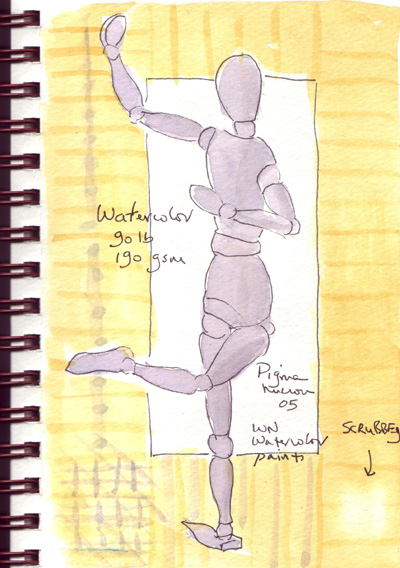 Watercolor
90 lb
190 gsm
Pigma
Micron
05
WN
Watercolor
paints
SCRUBBED